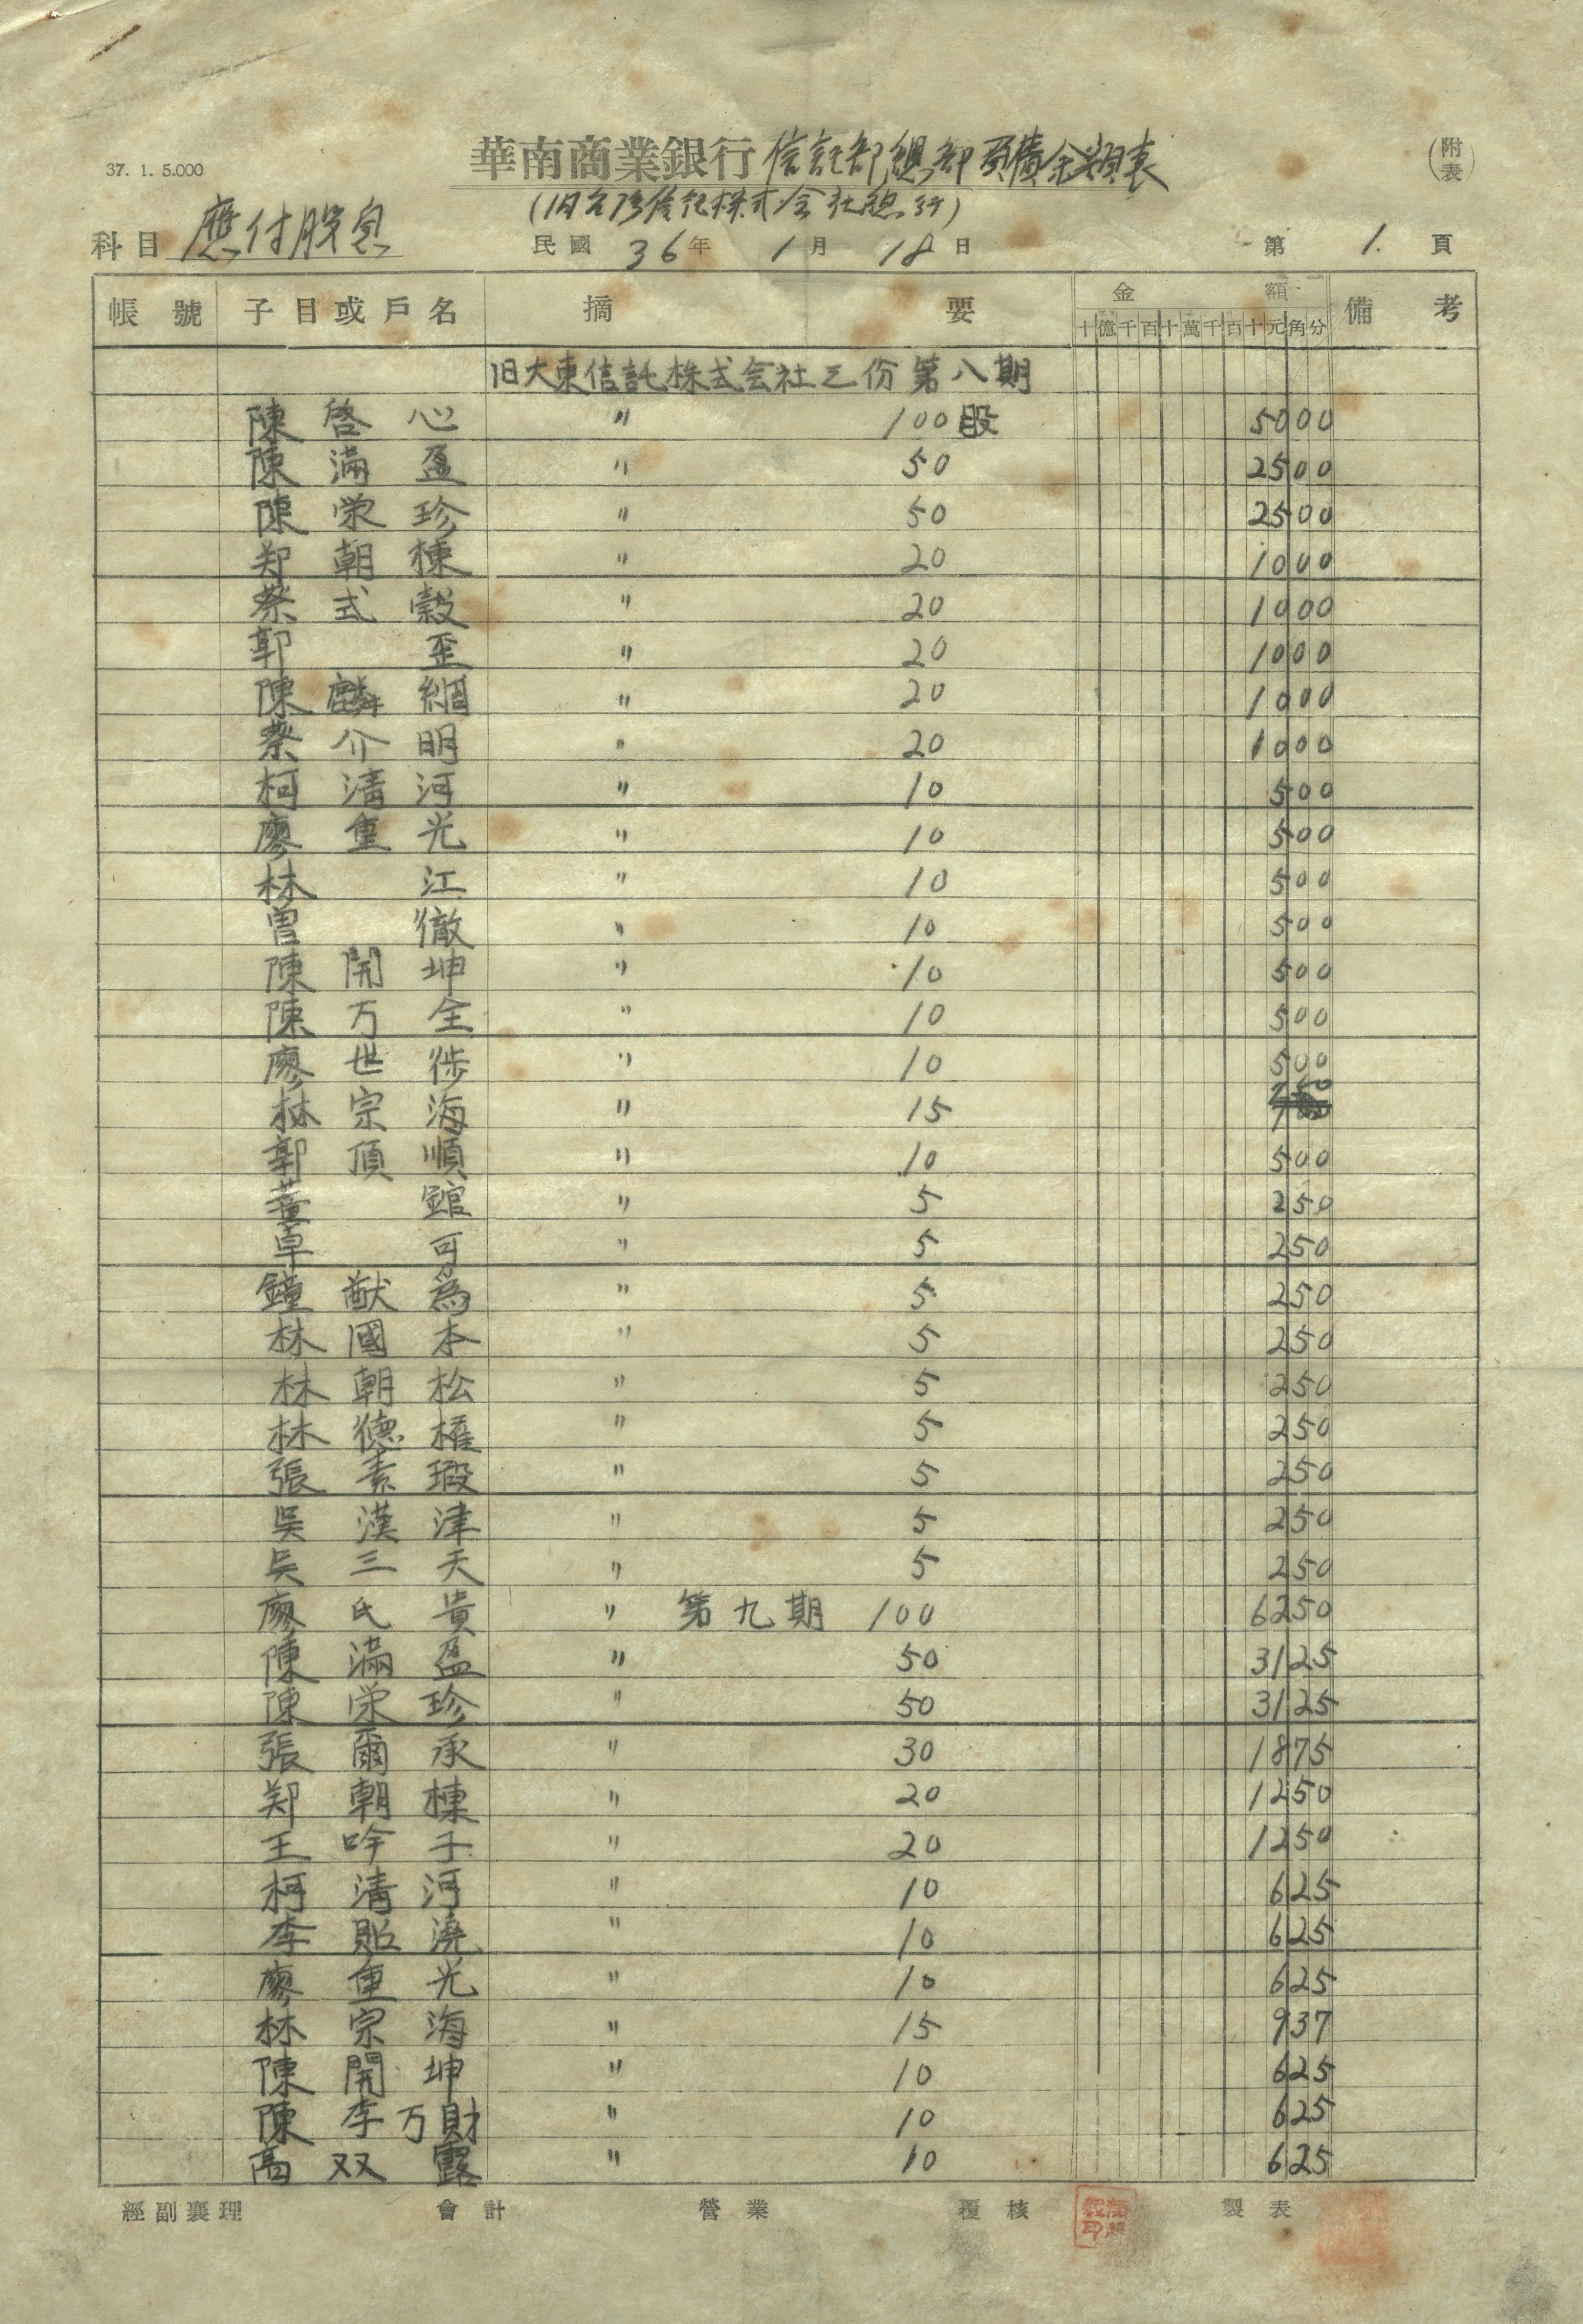 37. 1. 5.000
華南商業銀行信託部總部負債余額表
(附表)
(旧台湾信託株式会社總行)
科目 應付股息 民國 36年 1月 18日 第 1. 頁
帳號 子目或戶名 摘要 金額 備考
十億千百十萬千百十元角分
旧大東信託株式会社之份第八期
陳啓心 〃 100股 5000
陳滿盈 〃 50 2500
陳栄珍 〃 50 2500
郑朝棟 〃 20 1000
蔡式穀 〃 20 1000
郭歪 〃 20 1000
陳麟綢 〃 20 1000
蔡介明 〃 20 1000
柯清河 〃 10 500
廖重光 〃 10 500
林江 〃 10 500
曽徹 〃 10 500
陳開坤 〃 10 500
陳万全 〃 10 500
廖世 〃 10 500
林宗海 〃 15 750
郭頂順 〃 10 500
舘 〃 5 250
卓可 〃 5 250
鐘猷為 〃 5 250
林國本 〃 5 250
林朝松 〃 5 250
林德權 〃 5 250
張素瑕 〃 5 250
吳漢津 〃 5 250
吳三天 〃 5 250
廖氏貴 〃 第九期 100 6250
陳滿盈 〃 50 3125
陳栄珍 〃 50 3125
張爾承 〃 30 1875
郑朝棟 〃 20 1250
王吟子 〃 20 1250
柯清河 〃 10 625
李貽澆 〃 10 625
廖重光 〃 10 625
林宗海 〃 15 937
陳開坤 〃 10 625
陳李万財 〃 10 625
高双露 〃 10 625
經副襄理 會計 營業 覆核 製表